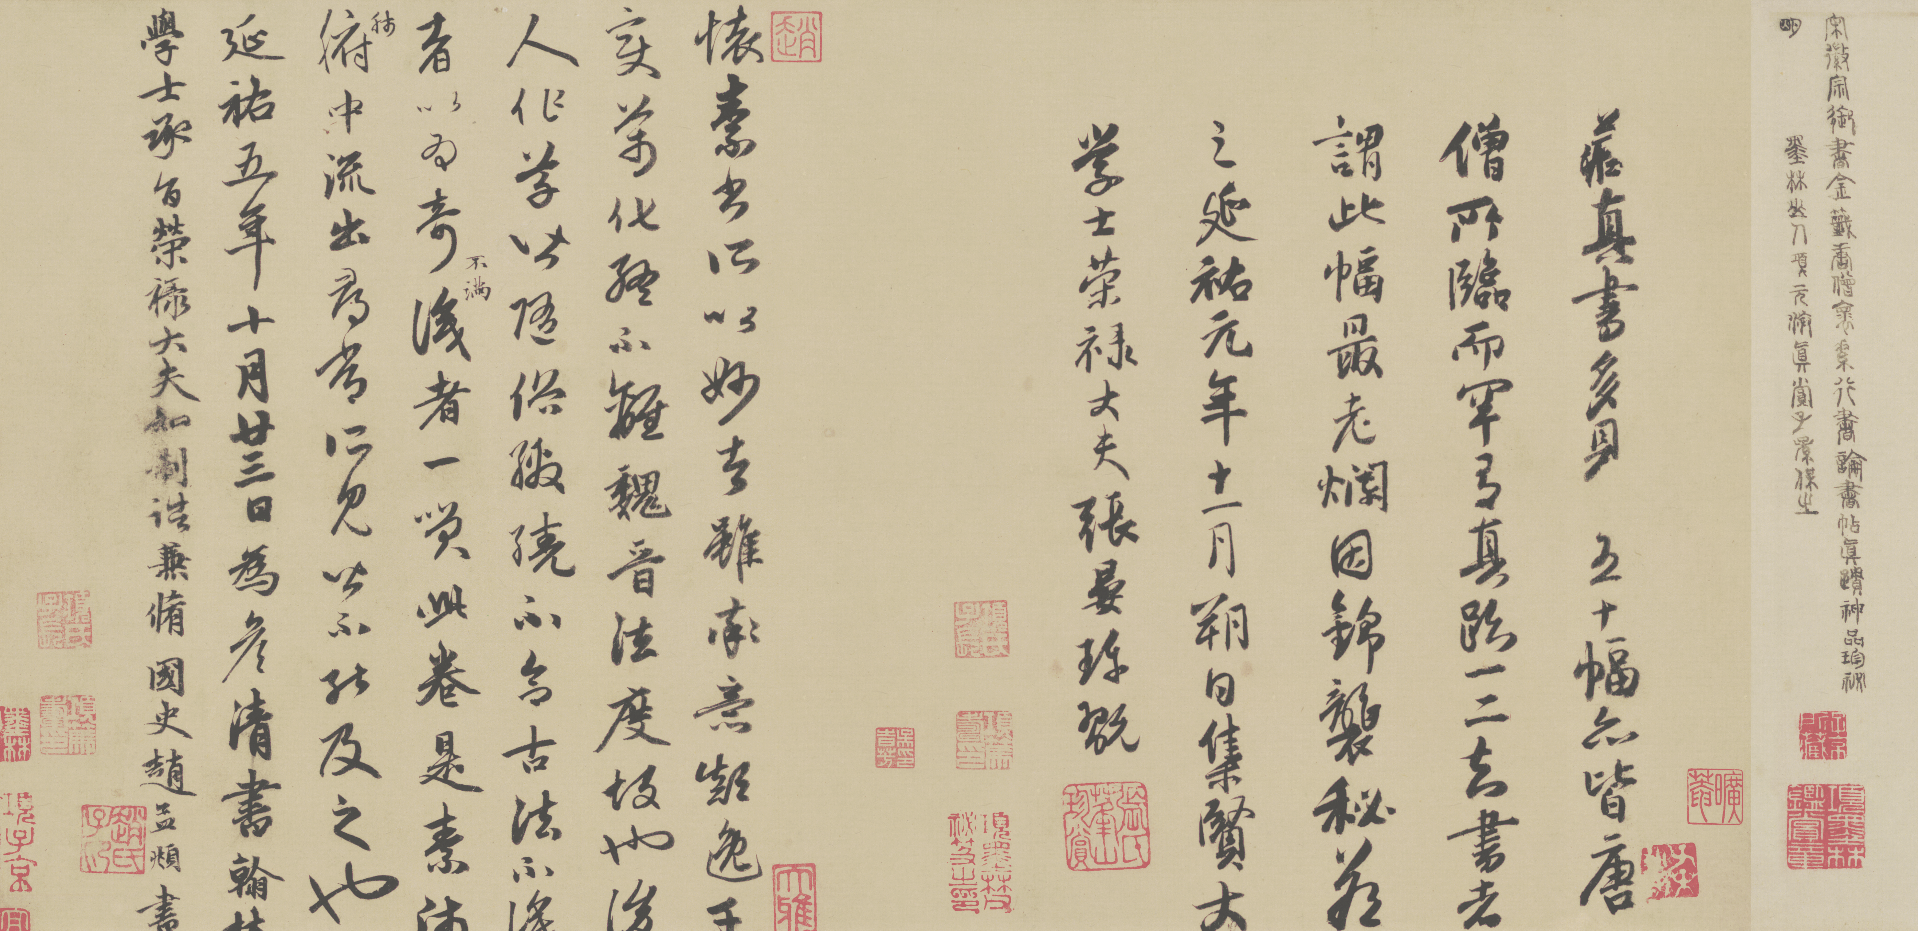 宋徽宗御書金籤唐僧懷素行書論書帖真蹟神品珍祕
明
墨林山人項元汴真賞子孫保之
藏真書多見五十幅亦皆唐
僧所臨而罕有真跡一二知書者
謂此幅最老爛因錦襲秘藏
之延祐元年十一月朔日集賢大
學士榮祿大夫張晏珍翫
懷素書所以妙者雖率意顛逸千
變萬化終不離魏晉法度故也後
人作草皆隨俗繳繞不合古法不識
者以為奇
不滿
識者一笑此卷是素師
肺
腑中流出尋常所見皆不能及之也
延祐五年十月廿三日為彥清書翰林
學士承旨榮祿大夫知制誥兼脩國史趙孟頫書
趙
大雅